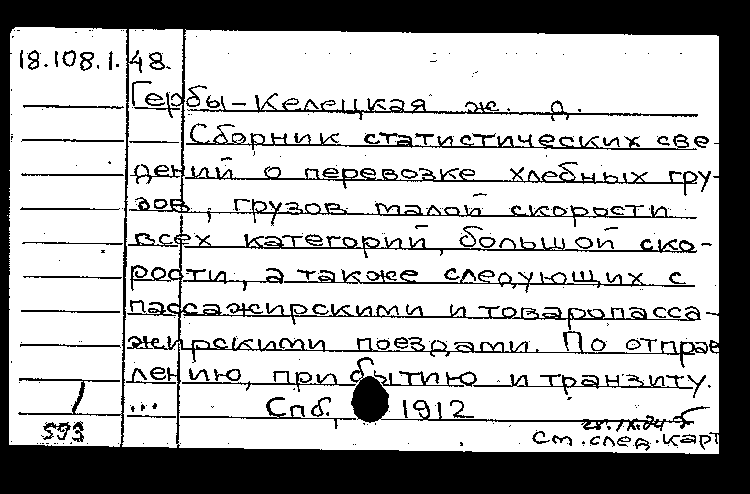 18.108.1.48.
Гербы-Келецкая ж. д.
Сборник статистических све-
дений о перевозке хлебных гру-
зов, грузов малой скорости
всех категорий, большой ско-
рости, а также следующих с
пассажирскими и товаропасса-
жирскими поездами. По отправ
лению, прибытию и транзиту.
... Спб, 1912
593
см. след. карт